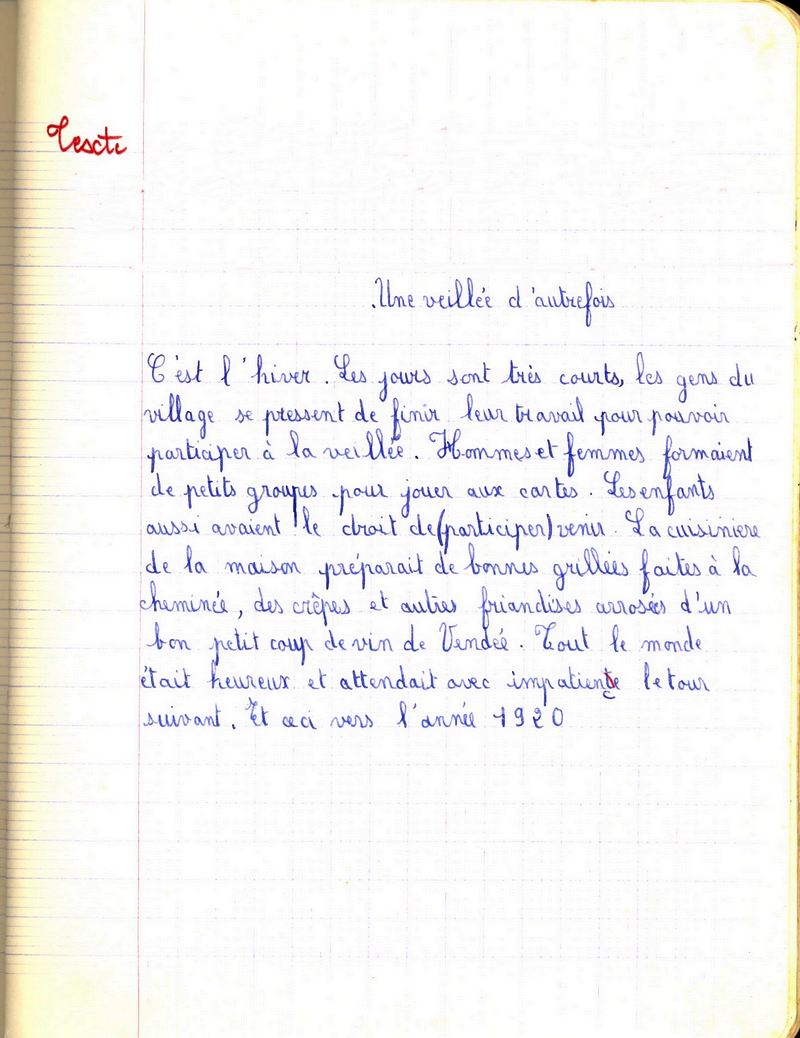 Texte
Une veillée d'autrefois
C'est l'hiver. Les jours sont très courts, les gens du
village se pressent de finir leur travail pour pouvoir
participer à la veillée. Hommes et femmes formaient
de petits groupes pour jouer aux cartes. Les enfants
aussi avaient le droit de (participer) venir. La cuisinière
de la maison préparait de bonnes grillées faites à la
cheminée, des crêpes et autres friandises arrosées d'un
bon petit coup de vin de Vendée. Tout le monde
était heureux et attendait avec impatience le tour
suivant. Et ceci vers l'année 1920